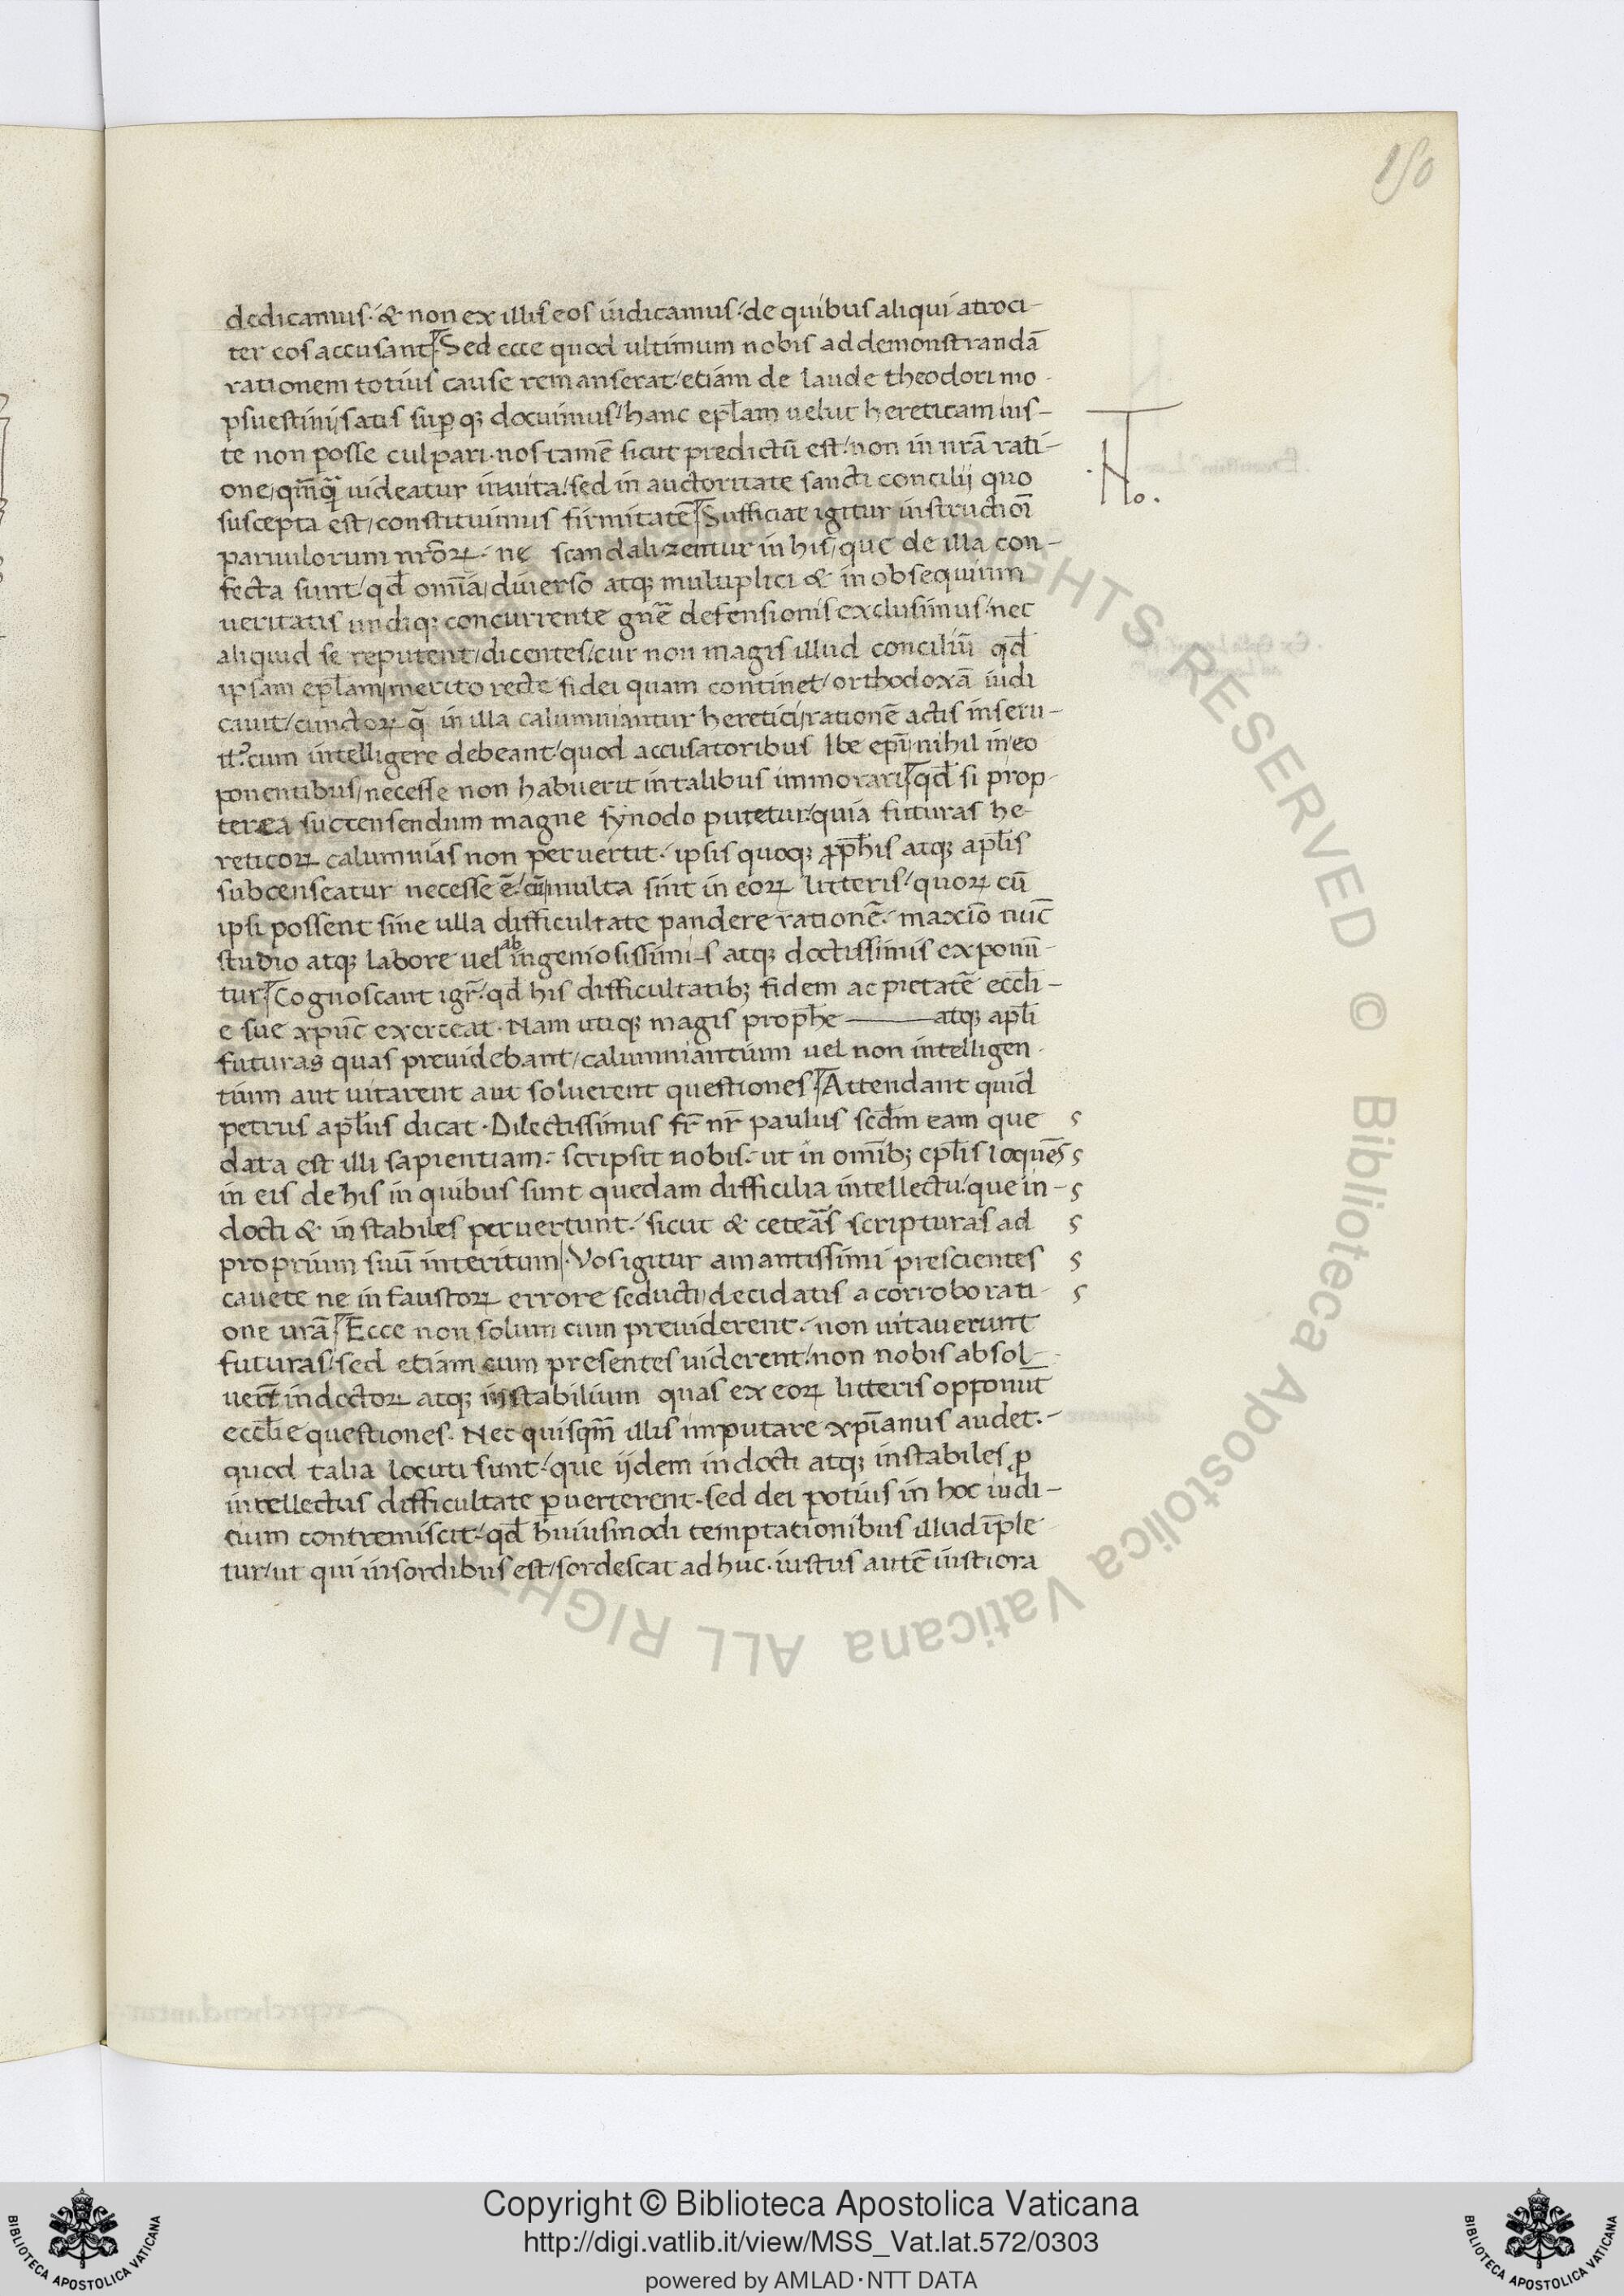 150
dedicamus· & non ex illis eos iudicamus· de quibus aliqui atroci-
ter eos accusant. Sed ecce quod ultimum nobis ad demonstrandā
rationem totius cause remanserat/ etiam de laude theodori mo-
psuestini/ satis supꝙ docuimus/ hanc epl̄am uelut hereticam ius-
te non posse culpari· nos tamē sicut predictū est/ non in nrā rati-
one/ qm̄qꝫ uideatur inuita/ sed in auctoritate sancti concilij quo
suscepta est/ constituimus firmitatē. Sufficiat igitur instructioī
paruulorum nrōꝝ· ne scandalizentur in his/ que de illa con-
fecta sunt/ qd̄ omīa/ diuerso atqꝫ multiplici & in obsequium
ueritatis undiqꝫ concurrente gñē defensionis exclusimus/ nec
aliquid se reputent/ dicentes/ cur non magis illud conciliū qd̄
ipsam epl̄am/ merito recte fidei quam continet/ orthodoxā iudi
cauit/ cunctoꝝ q̄ in illa calumniantur heretici/ rationē actis inseru-
it? cum intelligere debeant/ quod accusatoribus Ibe epī/ nihil in eo
ponentibus/ necesse non habuerit in talibus immorari. qd̄ si prop-
terea succensendum magne synodo putetur/ quia futuras he-
reticoꝝ calumnias non peruertit· ipsis quoqꝫ ꝓph̄is atqꝫ apl̄is
subcenseatur necesse ē/ cū multa sint in eoꝝ litteris/ quoꝝ cū
ipsi possent sine ulla difficultate pandere rationē· maxīo nūc
studio atqꝫ labore uel ab ingeniosissimi-s atqꝫ doctissimis exponū-
tur. Cognoscant igr̄· qd̄ his difficultatibꝫ fidem ac pietatē eccl̄i-
e sue xpūc exerceat· Nam utiqꝫ magis proph̄e —— atqꝫ apl̄i
futuras quas preuidebant/ calumniantium uel non intelligen-
tium aut uitarent aut soluerent questiones. Attendant quid
petrus apl̄us dicat· Dilectissimus fr̄ nr̄ paulus scd̄m eam que
data est illi sapientiam· scripsit nobis· ut in omībꝫ epl̄is loquēs
in eis de his in quibus sunt quedam difficilia intellectu/ que in-
docti & instabiles peruertunt· sicut & ceteās scripturas ad
proprium suū interitum. Vos igitur amantissimi prescientes
cauete ne in faustoꝝ errore seducti/ decidatis a corroborati-
one urā. Ecce non solum cum preuiderent· non uitauerunt
futuras/ sed etiam cum presentes uiderent/ non nobis absol-
uer̄t indoctoꝝ atqꝫ instabilium quas ex eoꝝ litteris opponūt
eccl̄ie questiones· Nec quisqm̄ illis imputare xpīanus audet·
quod talia locuti sunt/ que ijdem indocti atqꝫ instabiles ꝓ
intellectus difficultate ꝑuerterent· sed dei potius in hoc iudi-
cium contremiscit· qd̄ huiusmodi temptationibus illud īple
tur/ ut qui in sordibus est/ sordescat ad huc· iustus autē iustiora
No.
Copyright © Biblioteca Apostolica Vaticana
http://digi.vatlib.it/view/MSS_Vat.lat.572/0303
powered by AMLAD·NTT DATA
BIBLIOTECA APOSTOLICA VATICANA
BIBLIOTECA APOSTOLICA VATICANA
ALL RIGHTS RESERVED © Biblioteca Apostolica Vaticana